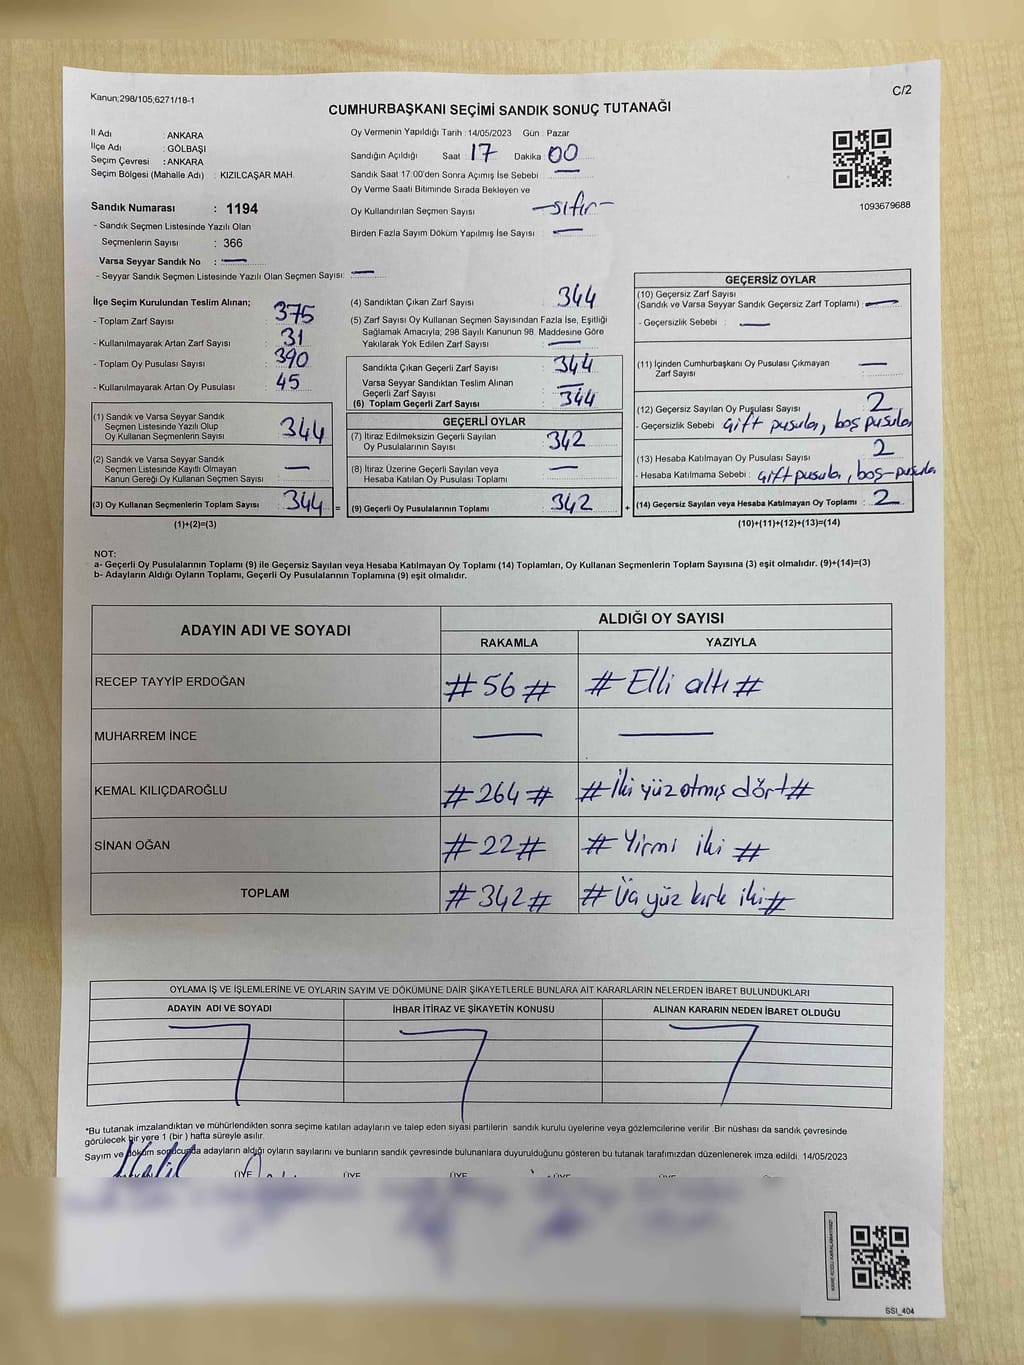 Kanun;298/105;6271/18-1
C/2
CUMHURBAŞKANI SEÇİMİ SANDIK SONUÇ TUTANAĞI
İl Adı : ANKARA
İlçe Adı : GÖLBAŞI
Seçim Çevresi : ANKARA
Seçim Bölgesi (Mahalle Adı) : KIZILCAŞAR MAH.
Sandık Numarası : 1194
- Sandık Seçmen Listesinde Yazılı Olan
Seçmenlerin Sayısı : 366
Varsa Seyyar Sandık No : —
- Seyyar Sandık Seçmen Listesinde Yazılı Olan Seçmen Sayısı: —
Oy Vermenin Yapıldığı Tarih : 14/05/2023 Gün : Pazar
Sandığın Açıldığı Saat 17 Dakika 00
Sandık Saat 17.00'den Sonra Açımış İse Sebebi —
Oy Verme Saati Bitiminde Sırada Bekleyen ve
Oy Kullandırılan Seçmen Sayısı —sıfır—
Birden Fazla Sayım Döküm Yapılmış İse Sayısı —
1093679688
İlçe Seçim Kurulundan Teslim Alınan;
- Toplam Zarf Sayısı : 375
- Kullanılmayarak Artan Zarf Sayısı : 31
- Toplam Oy Pusulası Sayısı : 390
- Kullanılmayarak Artan Oy Pusulası : 45
(1) Sandık ve Varsa Seyyar Sandık
Seçmen Listesinde Yazılı Olup
Oy Kullanan Seçmenlerin Sayısı : 344
(2) Sandık ve Varsa Seyyar Sandık
Seçmen Listesinde Kayıtlı Olmayan
Kanun Gereği Oy Kullanan Seçmen Sayısı : —
(3) Oy Kullanan Seçmenlerin Toplam Sayısı : 344 =
(1)+(2)=(3)
(4) Sandıktan Çıkan Zarf Sayısı 344
(5) Zarf Sayısı Oy Kullanan Seçmen Sayısından Fazla İse, Eşitliği
Sağlamak Amacıyla; 298 Sayılı Kanunun 98. Maddesine Göre
Yakılarak Yok Edilen Zarf Sayısı : —
Sandıkta Çıkan Geçerli Zarf Sayısı 344
Varsa Seyyar Sandıktan Teslim Alınan
Geçerli Zarf Sayısı —
(6) Toplam Geçerli Zarf Sayısı : 344
GEÇERLİ OYLAR
(7) İtiraz Edilmeksizin Geçerli Sayılan
Oy Pusulalarının Sayısı : 342
(8) İtiraz Üzerine Geçerli Sayılan veya
Hesaba Katılan Oy Pusulası Toplamı : —
(9) Geçerli Oy Pusulalarının Toplamı : 342 +
GEÇERSİZ OYLAR
(10) Geçersiz Zarf Sayısı
(Sandık ve Varsa Seyyar Sandık Geçersiz Zarf Toplamı) : —
- Geçersizlik Sebebi : —
(11) İçinden Cumhurbaşkanı Oy Pusulası Çıkmayan
Zarf Sayısı : —
(12) Geçersiz Sayılan Oy Pusulası Sayısı : 2
- Geçersizlik Sebebi çift pusula, boş pusula
(13) Hesaba Katılmayan Oy Pusulası Sayısı : 2
- Hesaba Katılmama Sebebi : çift pusula, boş-pusula
(14) Geçersiz Sayılan veya Hesaba Katılmayan Oy Toplamı : 2
(10)+(11)+(12)+(13)=(14)
NOT:
a- Geçerli Oy Pusulalarının Toplamı (9) ile Geçersiz Sayılan veya Hesaba Katılmayan Oy Toplamı (14) Toplamları, Oy Kullanan Seçmenlerin Toplam Sayısına (3) eşit olmalıdır. (9)+(14)=(3)
b- Adayların Aldığı Oyların Toplamı, Geçerli Oy Pusulalarının Toplamına (9) eşit olmalıdır.
ADAYIN ADI VE SOYADI
ALDIĞI OY SAYISI
RAKAMLA YAZIYLA
RECEP TAYYİP ERDOĞAN # 56 # # Elli altı #
MUHARREM İNCE — —
KEMAL KILIÇDAROĞLU # 264 # # İki yüz atmış dört #
SİNAN OĞAN # 22 # # Yirmi iki #
TOPLAM # 342 # # Üç yüz kırk iki #
OYLAMA İŞ VE İŞLEMLERİNE VE OYLARIN SAYIM VE DÖKÜMÜNE DAİR ŞİKAYETLERLE BUNLARA AİT KARARLARIN NELERDEN İBARET BULUNDUKLARI
ADAYIN ADI VE SOYADI İHBAR İTİRAZ VE ŞİKAYETİN KONUSU ALINAN KARARIN NEDEN İBARET OLDUĞU
*Bu tutanak imzalandıktan ve mühürlendikten sonra seçime katılan adayların ve talep eden siyasi partilerin sandık kurulu üyelerine veya gözlemcilerine verilir. Bir nüshası da sandık çevresinde
görülecek bir yere 1 (bir ) hafta süreyle asılır.
Sayım ve döküm sonucunda adayların aldığı oyların sayılarını ve bunların sandık çevresinde bulunanlara duyurulduğunu gösteren bu tutanak tarafımızdan düzenlenerek imza edildi. 14/05/2023
ÜYE ÜYE ÜYE ÜYE ÜYE
SSI_404